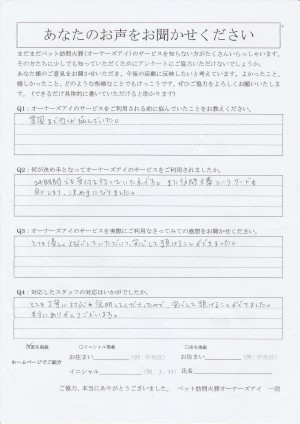 あなたのお声をお聞かせください
まだまだペット訪問火葬(オーナーズアイ)のサービスを知らない方がたくさんいらっしゃいます。
その方たちに少しでも知っていただくためにアンケートにご協力いただけないでしょうか。
あなた様のご意見をお聞かせいただき、今後の活動に反映したいと考えています。よかったこと、
嬉しかったこと、どのような些細なことでもけっこうです。ぜひご協力をよろしくお願いいたしま
す。(できるだけ具体的に書いていただけると助かります)
Q1:オーナーズアイのサービスをご利用される前に悩んでいたことをお教えください。
悩んでいた。
Q2:何が決め手となってオーナーズアイのサービスをご利用されましたか。
24時間
決め手になりました。
Q3:オーナーズアイのサービスを実際にご利用なさってみての感想をお聞かせください。
とても優しく対応していただいて、安心して頼けることができました。
Q4:対応したスタッフの対応はいかがでしたか。
とても丁寧に対応や説明してくださったので、安心して頼けることができました。
本当にありがとうございます。
□匿名掲載 □イニシャル掲載 □実名掲載
ホームページでご紹介
お住まい (例:中央区) お住まい (例:中央区)
イニシャル (例:J.H) 氏名
ご協力、本当にありがとうございました。 ペット訪問火葬オーナーズアイ 一同